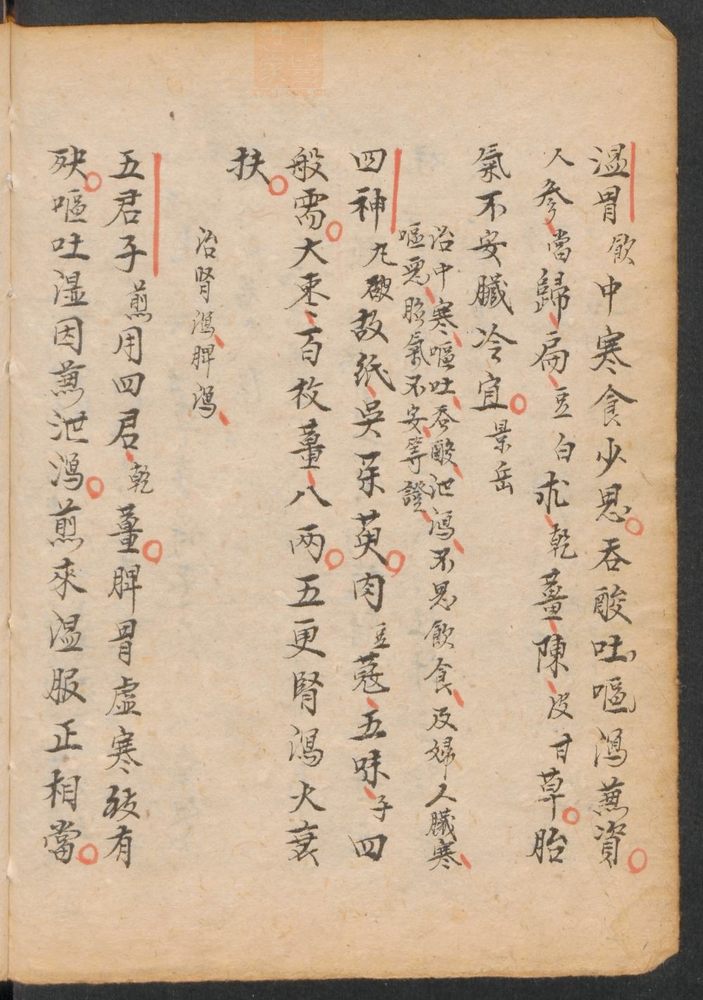 溫胃飲中寒食少思吞酸吐嘔瀉兼資
人參當歸扁豆白朮乾薑陳皮甘草胎
氣不安臟冷宜景岳
治中寒嘔吐吞酸泄瀉不思飲食及婦人臟寒
嘔惡胎氣不安等證
四神丸破故紙吳茱萸肉豆蔻五味子四
般需大棗百枚薑八兩五更腎瀉火衰
扶
治腎瀉脾瀉
五君子煎用四君乾薑脾胃虛寒致有
殃嘔吐湿因兼泄瀉煎來溫服正相當